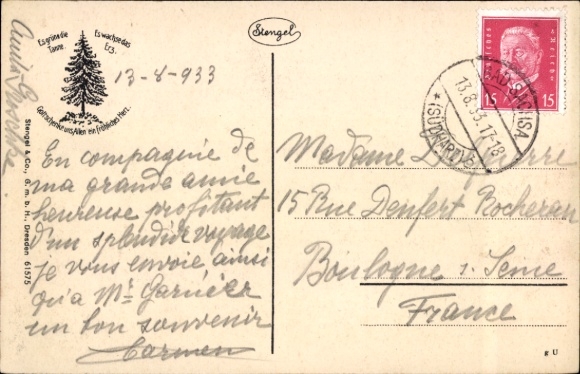 Stengel
Es grüne die Tanne.
Es wachse das Erz.
Gott schenke uns Allen ein fröhliches Herz.
13-8-933
En compagnie de
ma grande amie
heureuse profitant
d'un splendide voyage
je vous envoie ainsi
qu'a Mr Garnier
un bon souvenir
Carmen
Stengel & Co., G. m. b. H., Dresden 61575
Deutsches Reich
15 15
BAD SACHSA
13.8.33.17-18
(SÜDHARZ)
Madame
15 Rue Denfert Rochereau
Boulogne s. Seine
France
g U